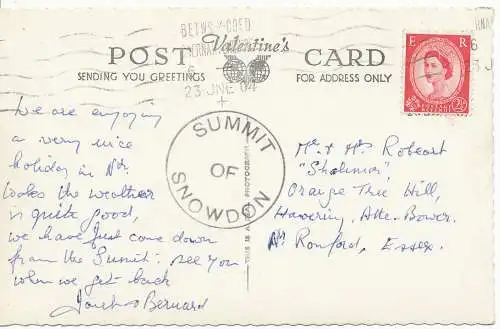 BETWS-Y-COED
Valentine's
POST CARD
SENDING YOU GREETINGS
FOR ADDRESS ONLY
23 JNE 64
E R
2½
SUMMIT
OF
SNOWDON
THIS IS A PHOTOGRAPH
We are enjoying
a very nice
holiday in Nth.
Wales the weather
is quite good,
we have just come down
from the Summit. See you
when we get back
Janet & Bernard
Mr & Mrs Robeart
"Shalimar"
Orange Tree Hill,
Havering, Atte-Bower.
Nr Romford, Essex.